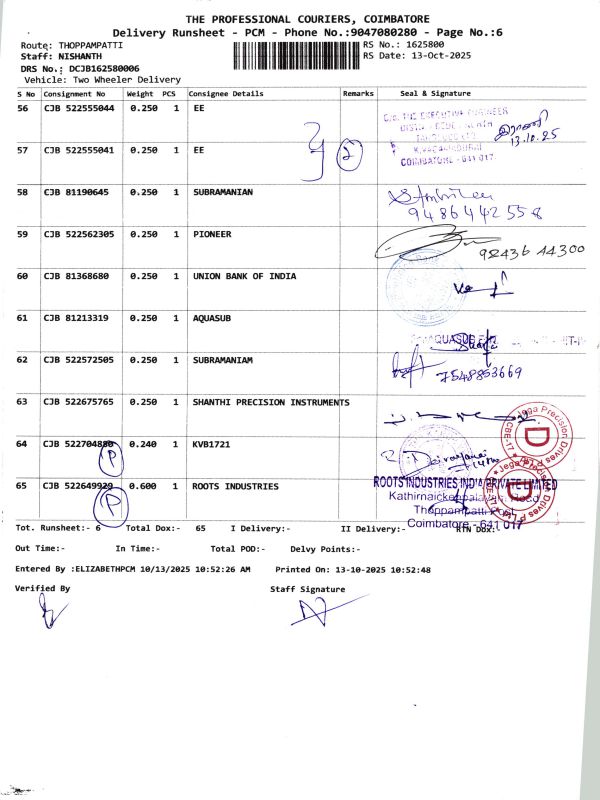 THE PROFESSIONAL COURIERS, COIMBATORE
Delivery Runsheet - PCM - Phone No.:9047080280 - Page No.:6
Route: THOPPAMPATTI
RS No.: 1625800
Staff: NISHANTH
RS Date: 13-Oct-2025
DRS No.: DCJB162580006
Vehicle: Two Wheeler Delivery
S No Consignment No Weight PCS Consignee Details Remarks Seal & Signature
56 CJB 522555044 0.250 1 EE
EXECUTIVE ENGINEER
13.10.25
57 CJB 522555041 0.250 1 EE
2
COIMBATORE - 641 017
58 CJB 81190645 0.250 1 SUBRAMANIAN
9486442558
59 CJB 522562305 0.250 1 PIONEER
98436 44300
60 CJB 81368680 0.250 1 UNION BANK OF INDIA
61 CJB 81213319 0.250 1 AQUASUB
AQUASUB
62 CJB 522572505 0.250 1 SUBRAMANIAM
7548853669
63 CJB 522675765 0.250 1 SHANTHI PRECISION INSTRUMENTS
Jega Precision Drives
D
64 CJB 522704880 0.240 1 KVB1721
P
65 CJB 522649929 0.600 1 ROOTS INDUSTRIES
P
ROOTS INDUSTRIES INDIA PRIVATE LIMITED
Kathirnaickenpalayam Road
Thoppampatti Post
Coimbatore - 641 017
Tot. Runsheet:- 6 Total Dox:- 65 I Delivery:- II Delivery:- RTN Dox:-
Out Time:- In Time:- Total POD:- Delvy Points:-
Entered By :ELIZABETHPCM 10/13/2025 10:52:26 AM Printed On: 13-10-2025 10:52:48
Verified By Staff Signature